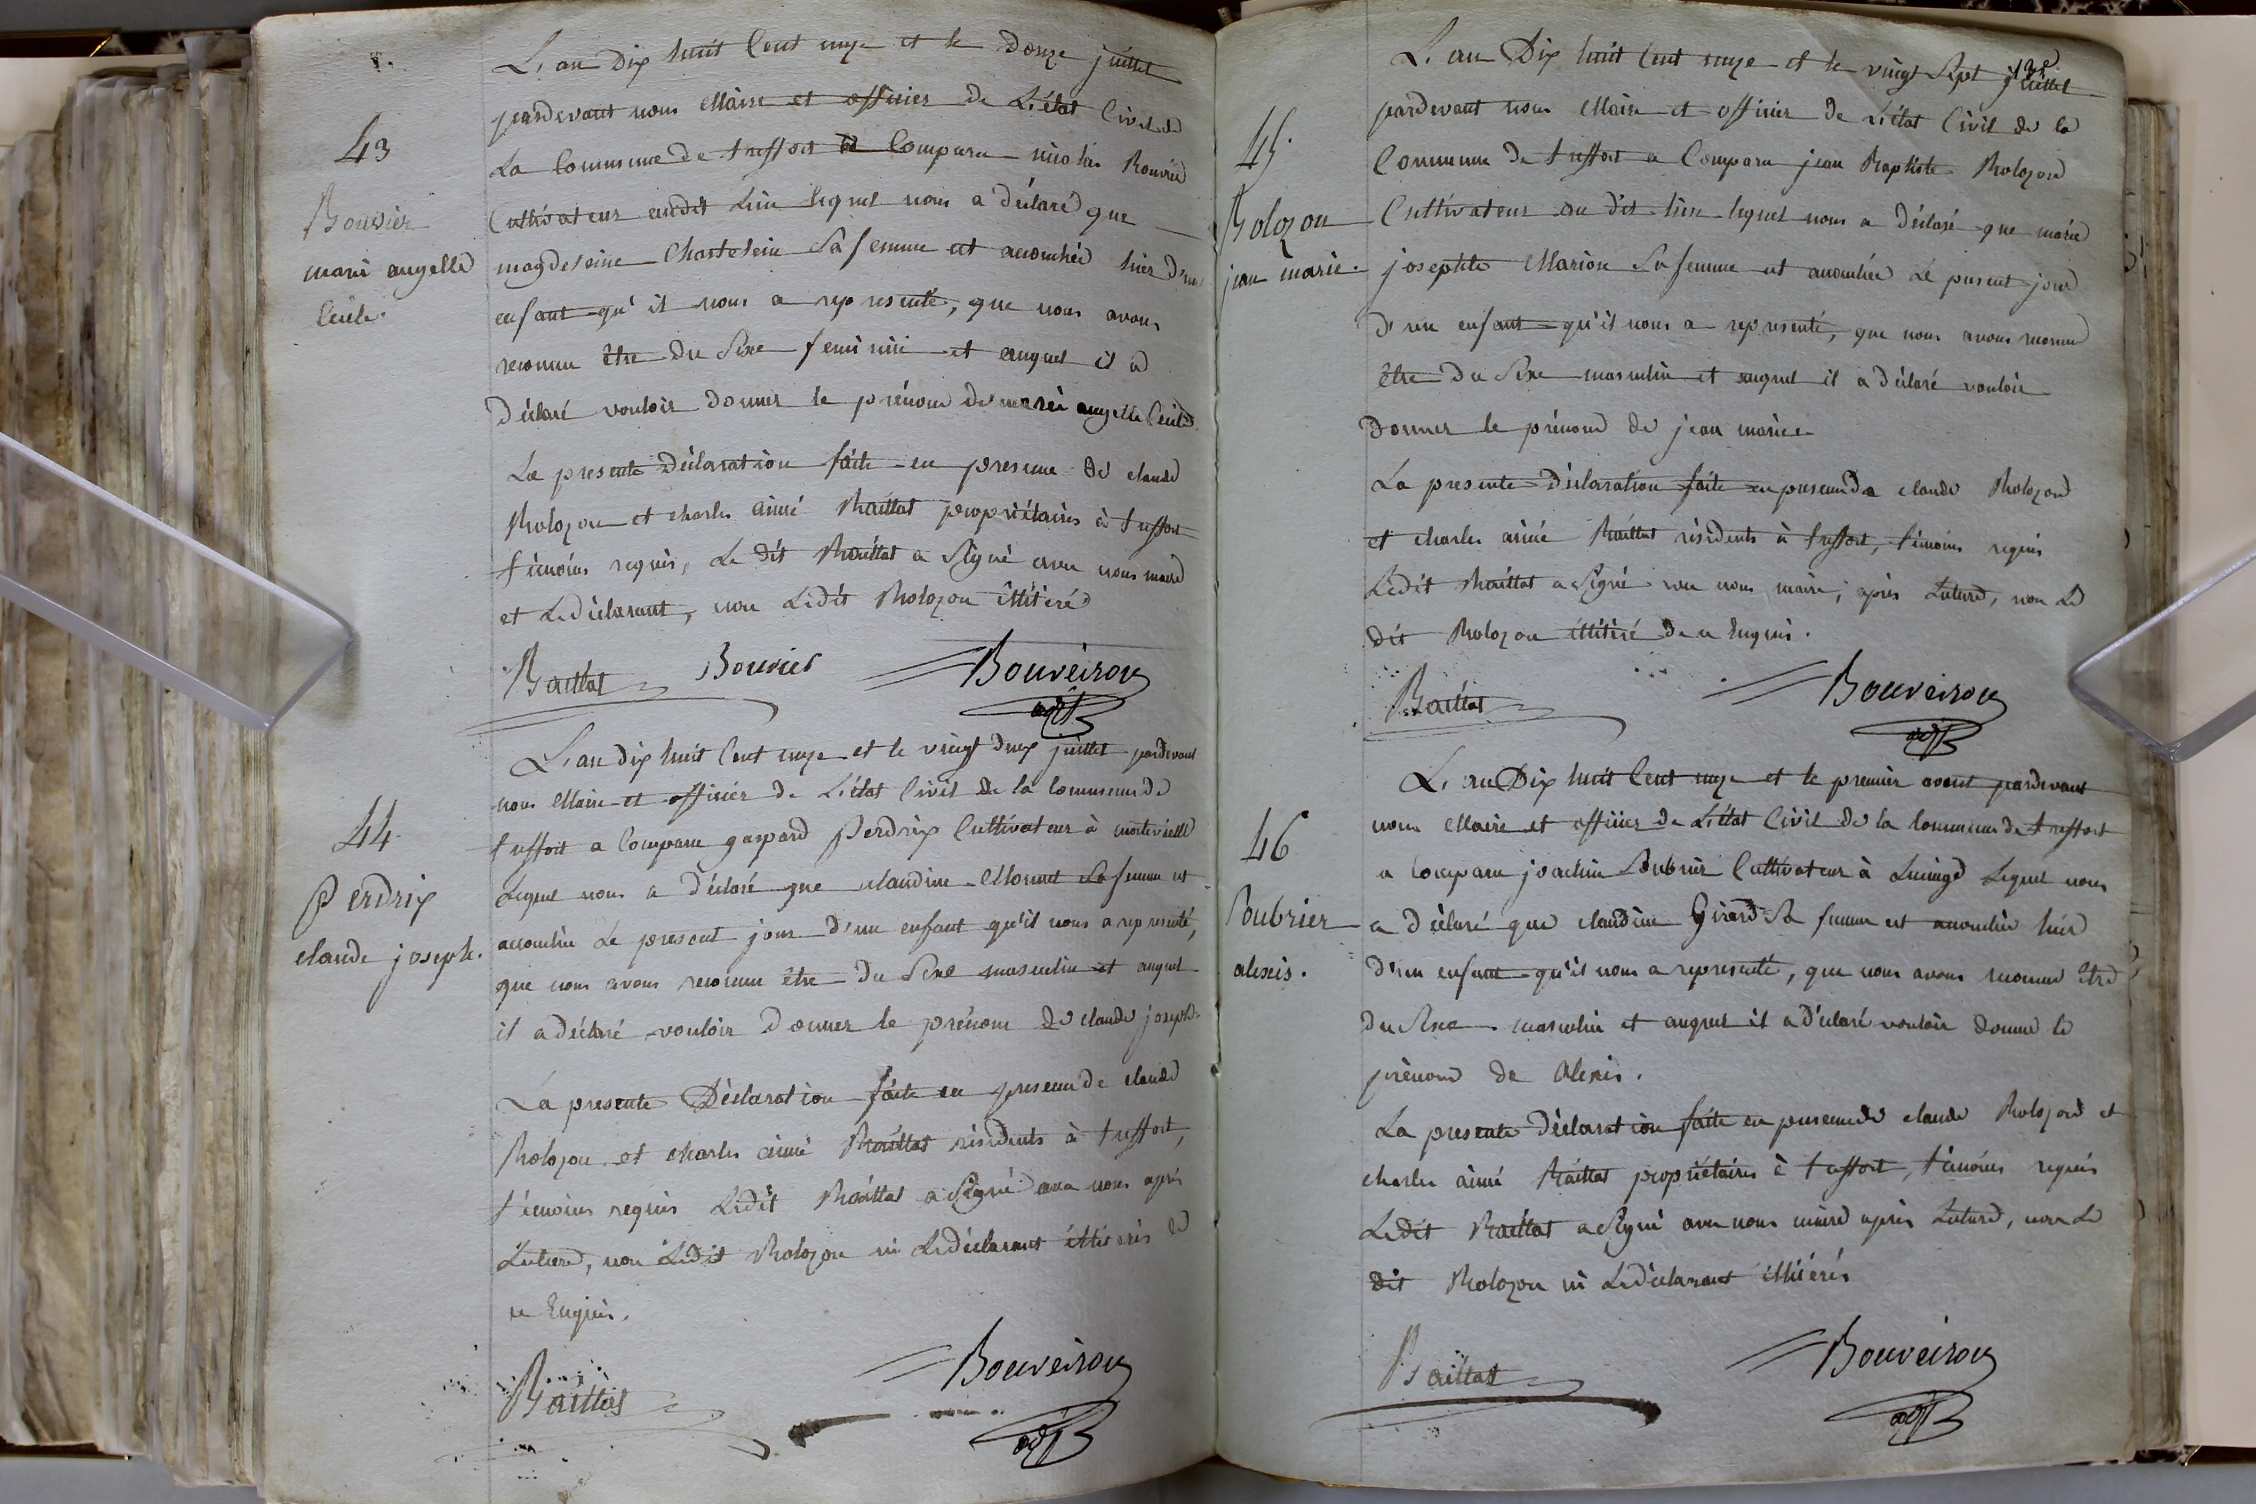 43
Bouvier
marie angelle
Cecile.
L'an Dix huit Cent onze et le Douze juillet
pardevant nous Maire et officier de L'état Civil de
La Commune de treffort a Comparu nicolas Bouvier
Cultivateur audit Lieu lequel nous a déclaré que
magdeleine Chatelein Sa femme est accouchée hier d'un
enfant qu'il nous a representé, que nous avons
reconnu être du Sexe feminin et auquel il a
déclaré vouloir donner le prénom de marie angelle Cecile.
La presente déclaration faite en presence de claude
Bolozon et charles aimé Baillat propriétaires à treffort
témoins requis, Le dit Baillat a Signé avec nous maire
et Le déclarant, non Ledit Bolozon illitéré
Baillat Bouvier Bouveiron
adjt
44
Perdrix
claude joseph.
L'an dix huit Cent onze et le vingt deux juillet pardevant
nous Maire et officier de L'état Civil de la Commune de
treffort a Comparu gaspard Perdrix Cultivateur à
Lequel nous a déclaré que claudine Sa femme est
accouchée Le present jour d'un enfant qu'il nous a representé,
que nous avons reconnu être du Sexe masculin et auquel
il a déclaré vouloir Donner le prénom de claude joseph.
La presente Déclaration faite en presence de claude
Bolozon et charles aimé Baillat résidents à treffort,
témoins requis Ledit Baillat a Signé avec nous après
Lecture, non Ledit Bolozon ni Le déclarant illitérés de
ce Enquis.
Baillat Bouveiron
adjt
45.
Bolozon
jean marie.
L'an Dix huit Cent onze et le vingt Sept juillet
pardevant nous Maire et officier de L'état Civil de la
Commune de treffort a Comparu jean Baptiste Bolozon
Cultivateur au dit lieu lequel nous a déclaré que marie
josephte Marion Sa femme est accouchée Le present jour
d'un enfant qu'il nous a representé, que nous avons reconnu
être du Sexe masculin et auquel il a déclaré vouloir
donner le prénom de jean marie
La presente déclaration faite en presence de claude Bolozon
et charles aimé Baillat résidents à treffort, témoins requis
Ledit Baillat a Signé avec nous maire, après Lecture, non Le
dit Bolozon illitéré de ce Enquis.
Baillat Bouveiron
adjt
46
Soubrier
alexis.
L'an Dix huit Cent onze et le premier aout pardevant
nous Maire et officier de L'état Civil de la Commune de treffort
a Comparu joachim Soubrier Cultivateur à Lucinge Lequel nous
a déclaré que claudine Girard Sa femme est accouchée hier
d'un enfant qu'il nous a representé, que nous avons reconnu être
du Sexe masculin et auquel il a déclaré vouloir donner le
prénom de Alexis.
La presente déclaration faite en presence de claude Bolozon et
charles aimé Baillat propriétaires à treffort, témoins requis
Ledit Baillat a Signé avec nous maire après Lecture, non Le
dit Bolozon ni Le déclarant illitérés
Baillat Bouveiron
adjt